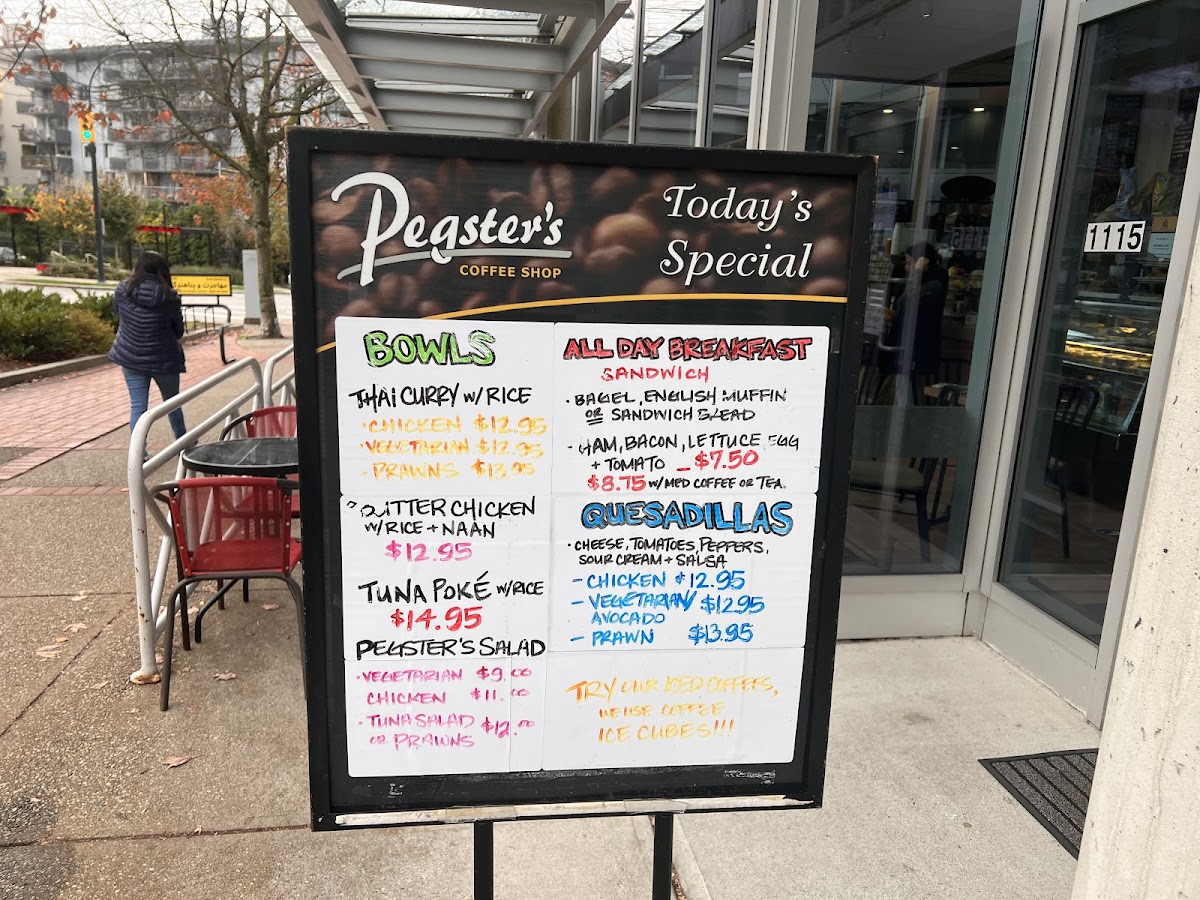 Pegster's
COFFEE SHOP
Today's
Special
BOWLS
THAI CURRY W/ RICE
·CHICKEN $12.95
·VEGETARIAN $12.95
-PRAWNS $13.95
BUTTER CHICKEN
W/RICE + NAAN
$12.95
TUNA POKÉ W/RICE
$14.95
PEGSTER'S SALAD
·VEGETARIAN $9.00
CHICKEN $11.00
·TUNA SALAD $12.00
OR PRAWNS
ALL DAY BREAKFAST
SANDWICH
·BAGEL, ENGLISH MUFFIN
OR SANDWICH BREAD
·HAM, BACON, LETTUCE EGG
+ TOMATO - $7.50
$8.75 W/MED COFFEE OR TEA.
QUESADILLAS
·CHEESE, TOMATOES, PEPPERS,
SOUR CREAM + SALSA
- CHICKEN $12.95
- VEGETARIAN/ $12.95
AVOCADO
- PRAWN $13.95
TRY OUR ICED COFFEES,
WE USE COFFEE
ICE CUBES!!!
1115
مهاجرت و پناهندگی